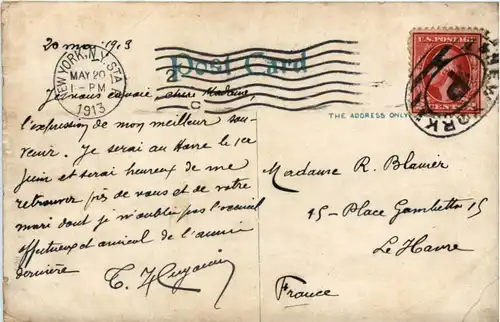 20 mai 1913
NEW YORK, N.Y. STA.
MAY 20
1-PM
1913
Post Card
U.S. POSTAGE
THE ADDRESS ONLY
Je vous envoie, chère Madame,
l'expression de mon meilleur sou-
venir. Je serai au Havre le 1er
juin et serai heureux de me
retrouver près de vous et de votre
mari dont je n'oublie pas l'accueil
affectueux et amical de l'année
dernière
Madame R. Blavier
15 - Place Gambetta 15
Le Havre
France